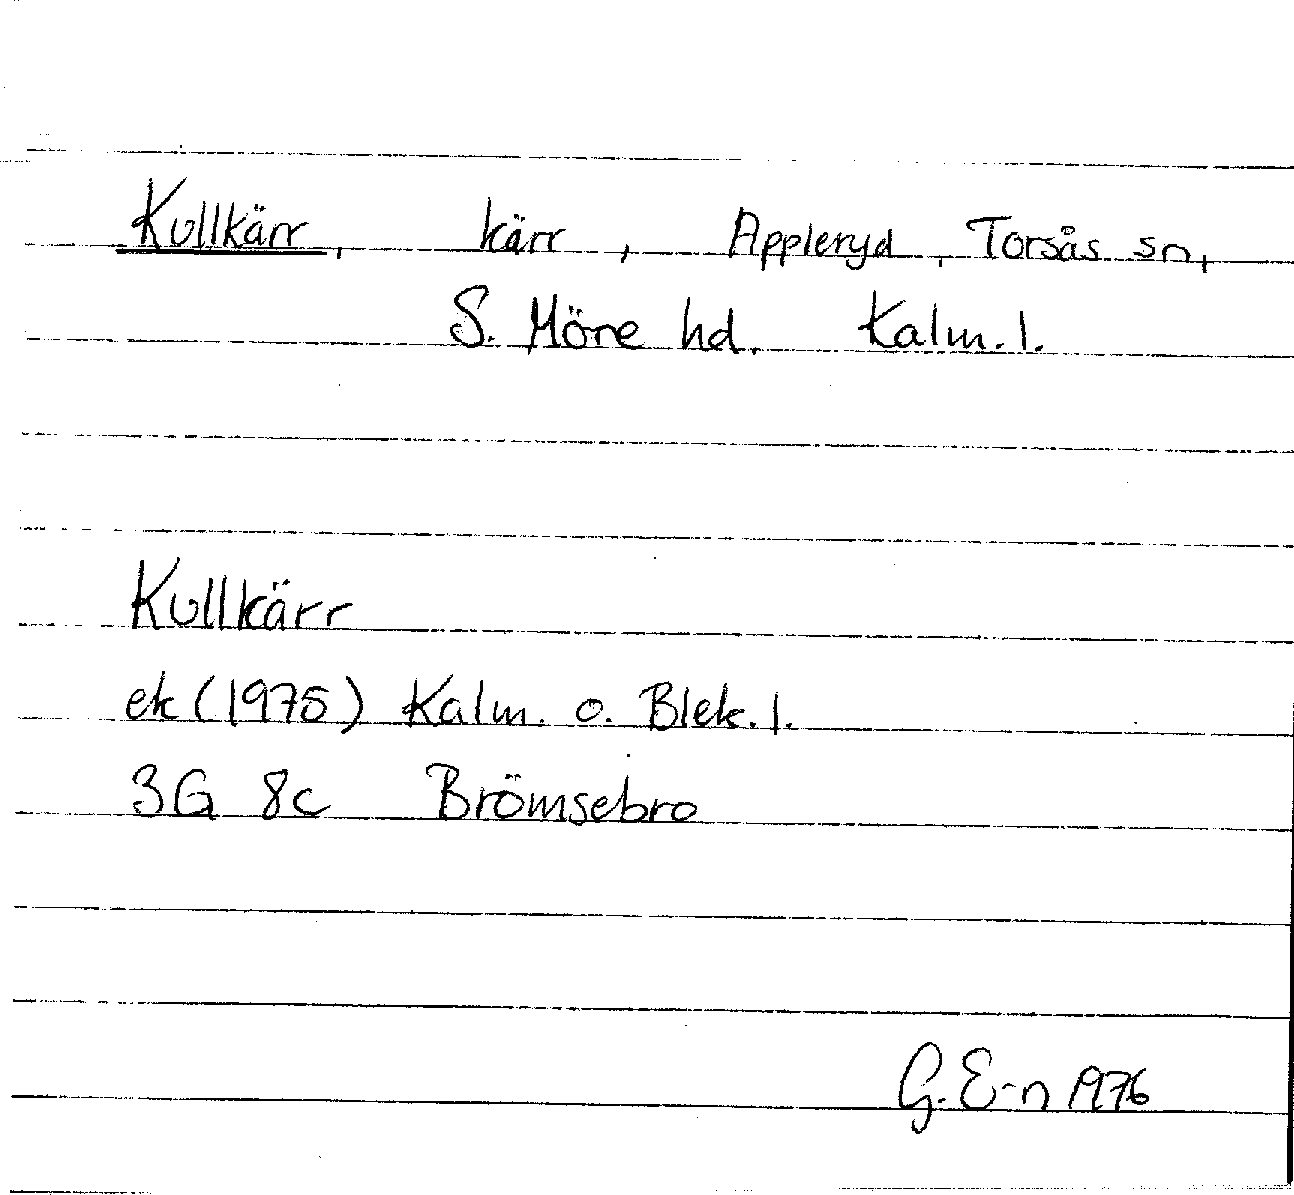 Kullkärr, kärr, Appleryd, Torsås sn,
S. Möre hd. Kalm. l.
Kullkärr
ek (1975) Kalm. o. Blek. l.
3G 8c Brömsebro
G. E-n 1976